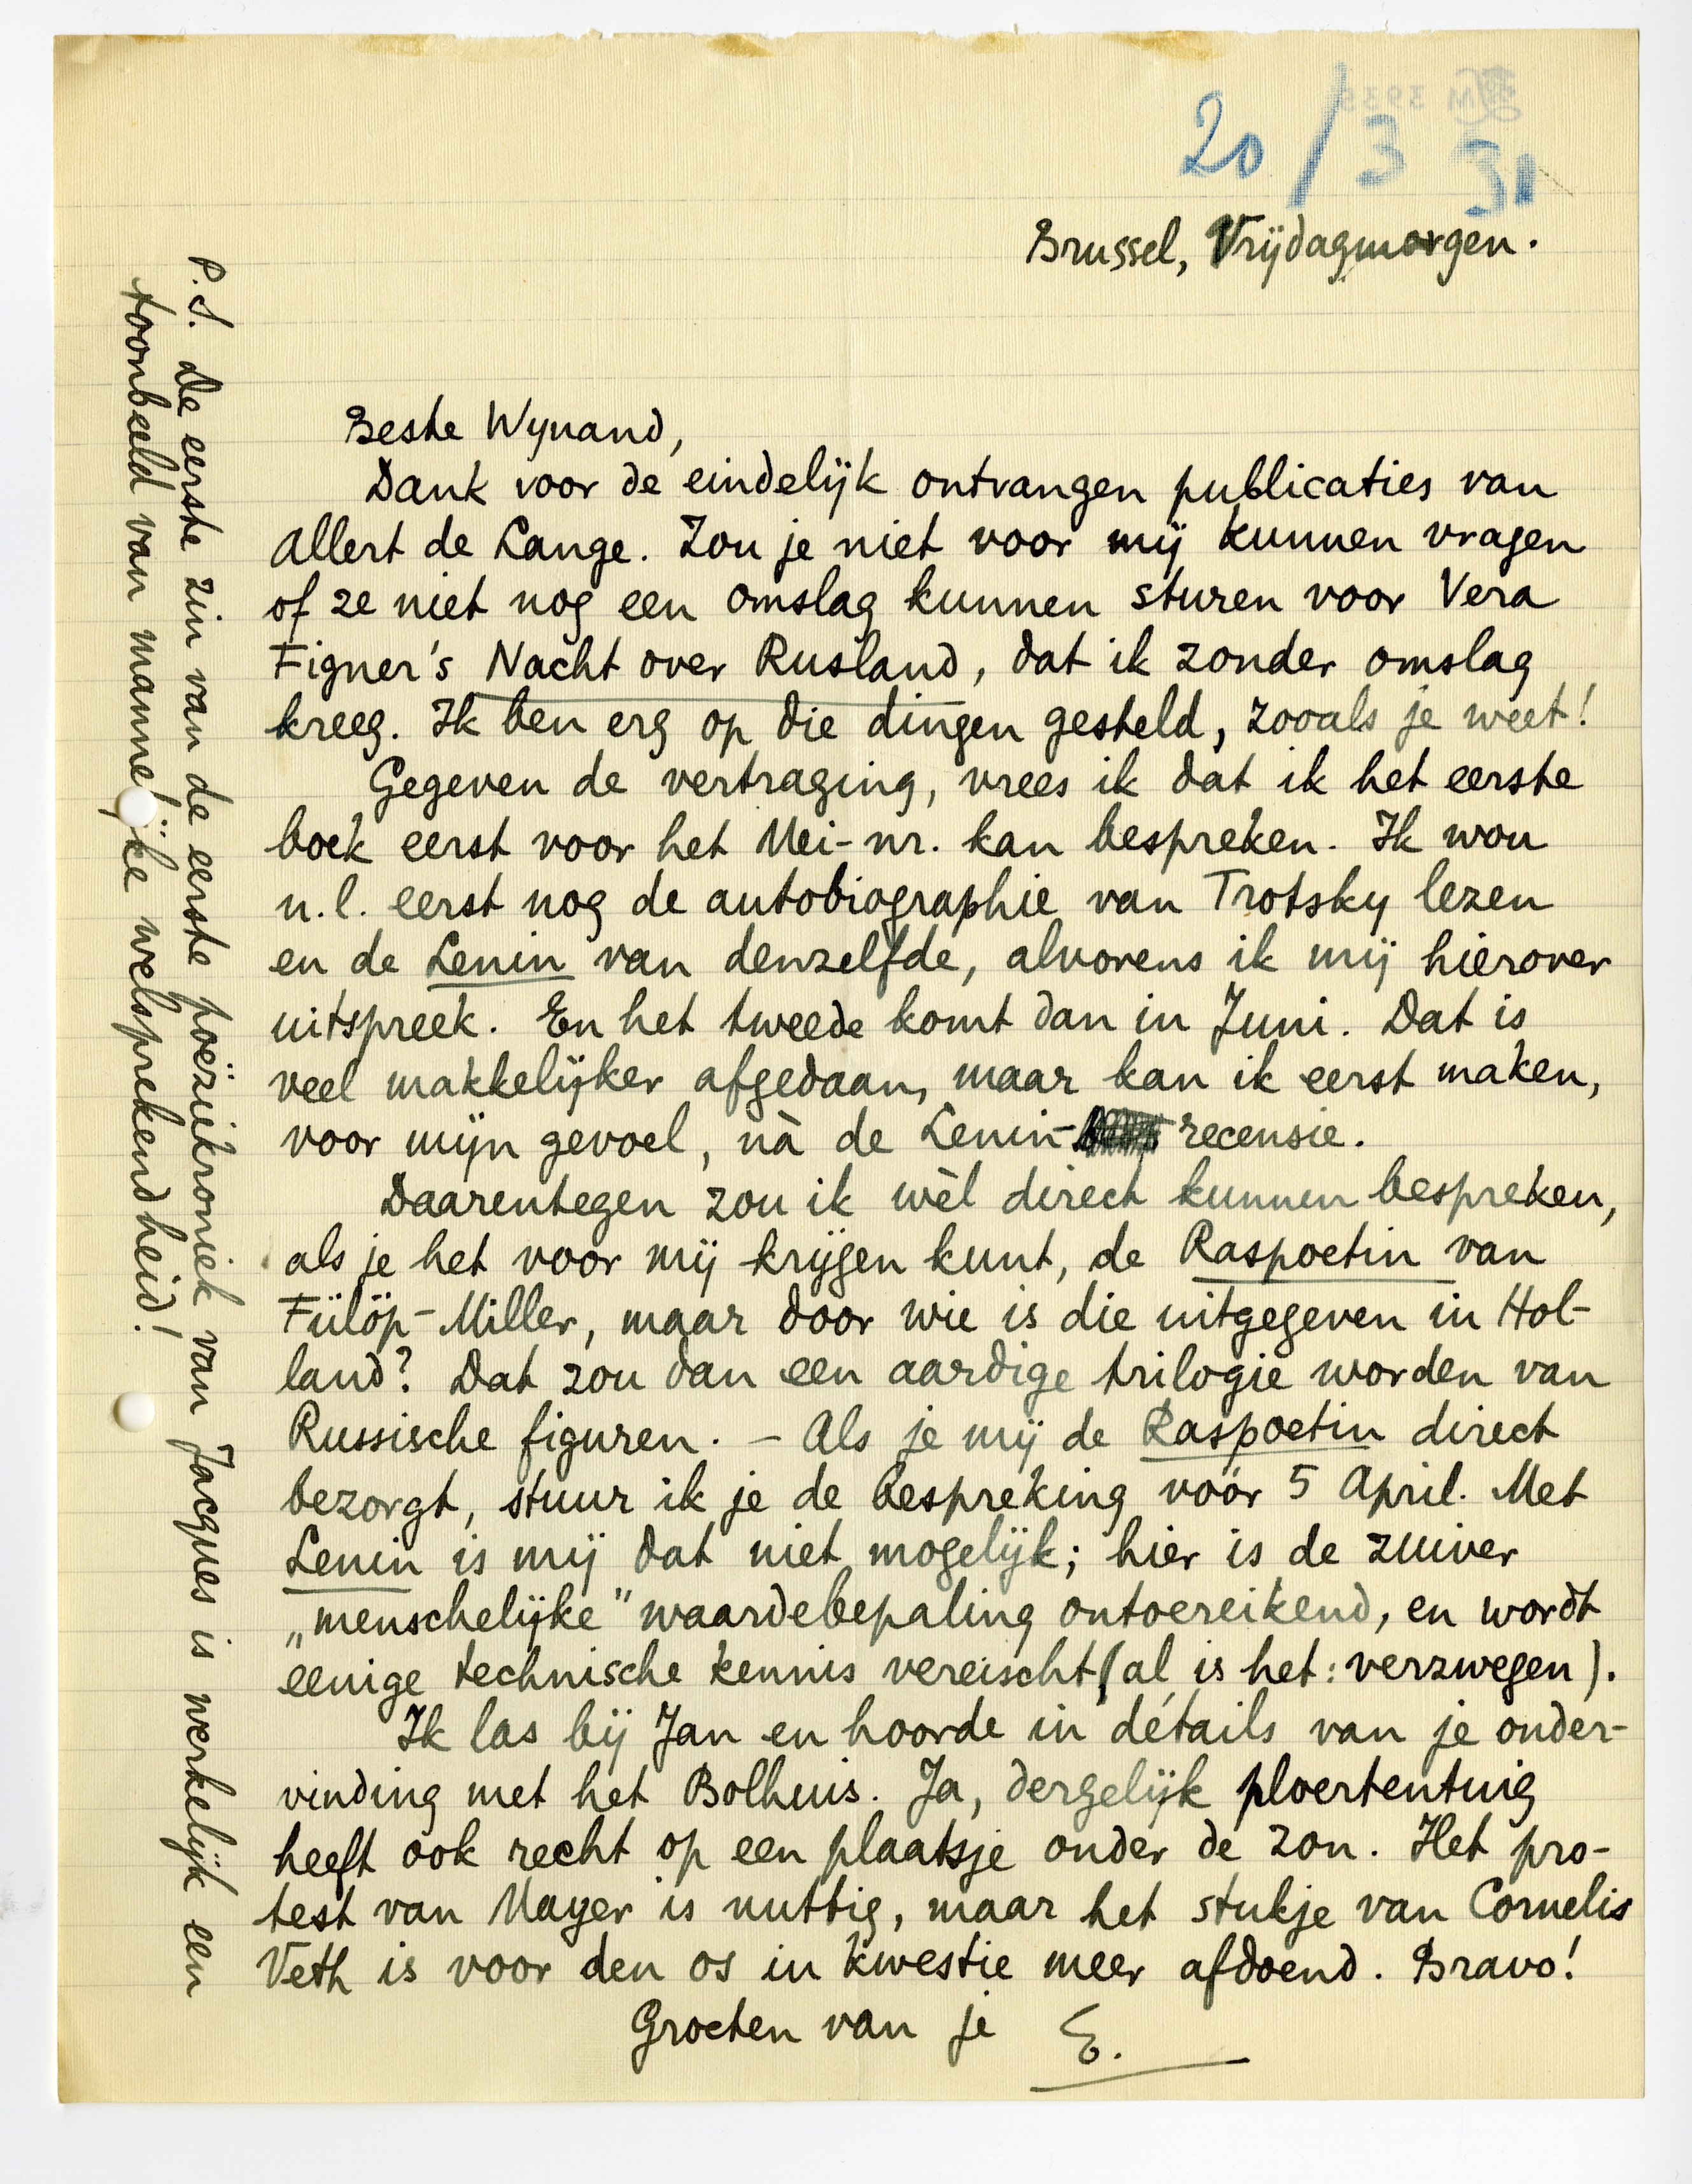 20/3 31
Brussel, Vrijdagmorgen.
Beste Wynand,
Dank voor de eindelijk ontvangen publicaties van
Allert de Lange. Zou je niet voor mij kunnen vragen
of ze niet nog een omslag kunnen sturen voor Vera
Figner's Nacht over Rusland, dat ik zonder omslag
kreeg. Ik ben erg op die dingen gesteld, zooals je weet!
Gegeven de vertraging, vrees ik dat ik het eerste
boek eerst voor het Mei-nr. kan bespreken. Ik wou
n.l. eerst nog de autobiographie van Trotsky lezen
en de Lenin van denzelfde, alvorens ik mij hierover
uitspreek. En het tweede komt dan in Juni. Dat is
veel makkelijker afgedaan, maar kan ik eerst maken,
voor mijn gevoel, nà de Lenin-recensie.
Daarentegen zou ik wèl direct kunnen bespreken,
als je het voor mij krijgen kunt, de Raspoetin van
Fülöp-Miller, maar door wie is die uitgegeven in Hol-
land? Dat zou dan een aardige trilogie worden van
Russische figuren. – Als je mij de Raspoetin direct
bezorgt, stuur ik je de bespreking vóór 5 April. Met
Lenin is mij dat niet mogelijk; hier is de zuiver
„menschelijke" waardebepaling ontoereikend, en wordt
eenige technische kennis vereischt (al is het: verzwegen).
Ik las bij Jan en hoorde in détails van je onder-
vinding met het Bolhuis. Ja, dergelijk ploertentuig
heeft ook recht op een plaatsje onder de zon. Het pro-
test van Mayer is nuttig, maar het stukje van Cornelis
Veth is voor den os in kwestie meer afdoend. Bravo!
Groeten van je E.
P.S. De eerste zin van de eerste poëziekroniek van Jacques is werkelijk een
toonbeeld van mannelijke welsprekendheid!